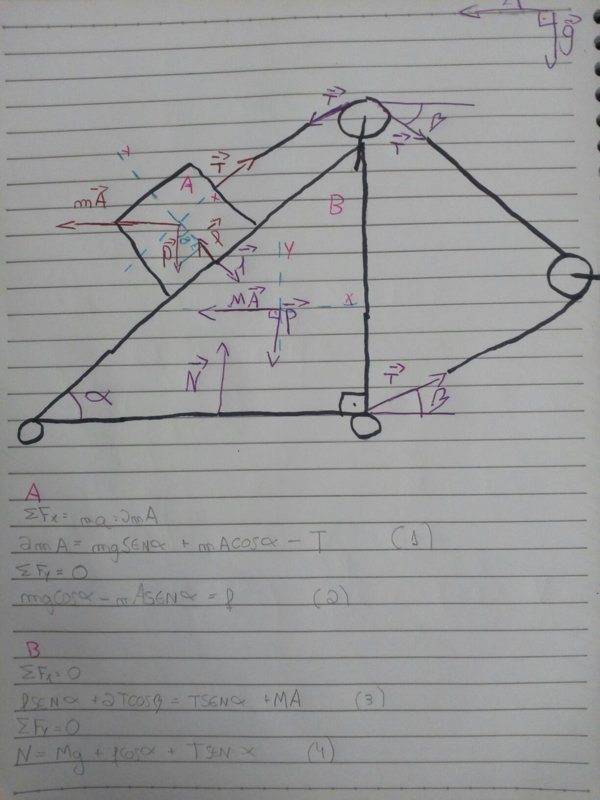 A
g⃗
T⃗
T⃗
β
T⃗
A
mA⃗
x
B
P⃗
Y
MA⃗
x
P⃗
N⃗
T⃗
α
β
A
ΣFx = ma = 2mA
2mA = mgSENα + mACOSα - T (1)
ΣFy = 0
mgCOSα - mASENα = f (2)
B
ΣFx = 0
fSENα + 2TCOSβ = TSENα + MA (3)
ΣFy = 0
N = Mg + fCOSα + TSENα (4)